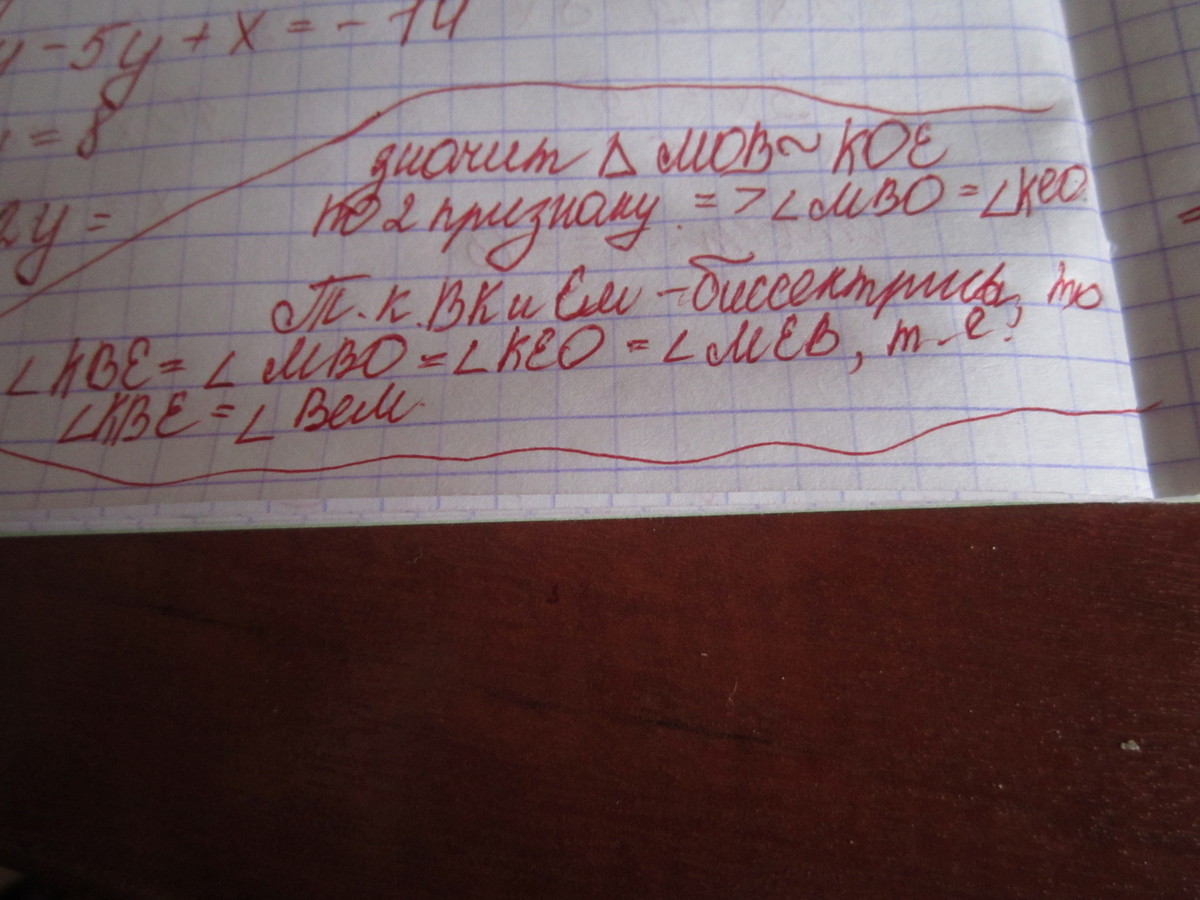 y - 5y + x = - 14
= 8
2y =
значит △ MOB ~ KOE
по 2 признаку. => ∠MBO = ∠KEO.
Т.к. BK и EM - биссектрисы, то
∠KBE = ∠MBO = ∠KEO = ∠MEB, т.е.
∠KBE = ∠BEM.